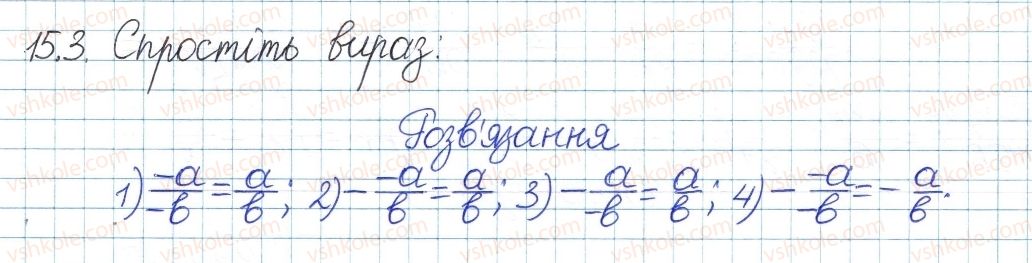 15.3. Спростіть вираз:
Розв'язання
1) -a/-b = a/b; 2) - -a/b = a/b; 3) - a/-b = a/b; 4) - -a/-b = - a/b.